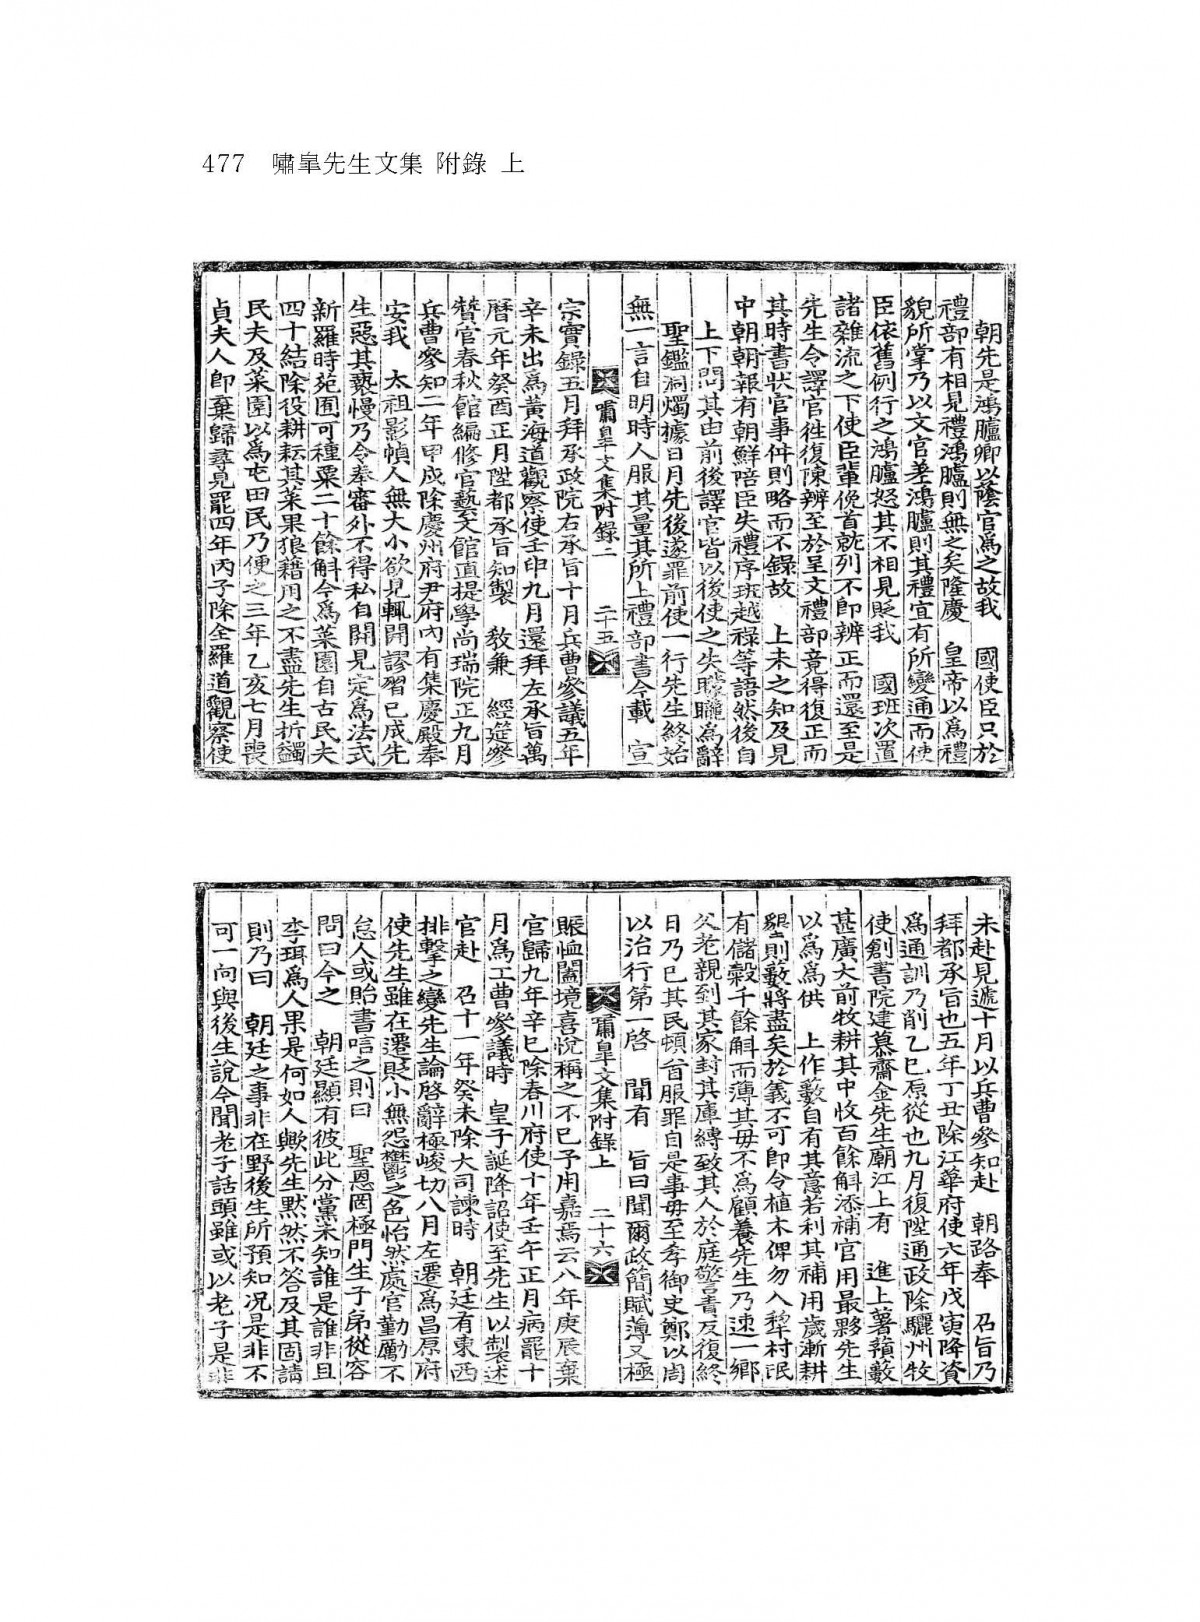 477 嘯皐先生文集 附錄 上
朝先是鴻臚卿以蔭官爲之故我 國使臣只於
禮部有相見禮鴻臚則無之矣隆慶 皇帝以爲禮
貌所掌乃以文官差鴻臚則其禮宜有所變通而使
臣依舊例行之鴻臚怒其不相見貶我 國班次置
諸雜流之下使臣輩俛首就列不卽辨正而還至是
先生令譯官徃復陳辨至於呈文禮部竟得復正而
其時書狀官事件則略而不錄故 上未之知及見
中朝朝報有朝鮮陪臣失禮序班越祿等語然後自
上下問其由前後譯官皆以後使之失朦朧爲辭
聖鑑洞燭據日月先後遂罪前使一行先生終始
無一言自明時人服其量其所上禮部書今載 宣
嘯皐文集附錄二 二十五
宗實錄五月拜承政院右承旨十月兵曹參議五年
辛未出爲黃海道觀察使壬申九月還拜左承旨萬
曆元年癸酉正月陞都承旨知製 敎兼 經筵參
贊官春秋館編修官藝文館直提學尙瑞院正九月
兵曹參知二年甲戌除慶州府尹府內有集慶殿奉
安我 太祖影幀人無大小欲見輒開謬習已成先
生惡其褻慢乃令奉審外不得私自開見定爲法式
新羅時苑囿可種粟二十餘斛今爲菜園自古民夫
四十結除役耕耘其菜果狼藉用之不盡先生折蠲
民夫及菜園以爲屯田民乃便之三年乙亥七月喪
貞夫人卽棄歸尋見罷四年丙子除全羅道觀察使
未赴見遞十月以兵曹參知赴 朝路奉 召旨乃
拜都承旨也五年丁丑除江華府使六年戊寅降資
爲通訓乃削乙巳原從也九月復陞通政除驪州牧
使創書院建慕齋金先生廟江上有 進上薯蕷藪
甚廣大前牧耕其中收百餘斛添補官用最夥先生
以爲爲供 上作藪自有其意若利其補用歲漸耕
墾則藪將盡矣於義不可卽令植木俾勿入犂村氓
有儲穀千餘斛而薄其母不爲顧養先生乃速一鄉
父老親到其家封其庫縛致其人於庭警責反復終
日乃已其民頓首服罪自是事母至孝御史鄭以周
以治行第一啓 聞有 旨曰聞爾政簡賦薄又極
嘯皐文集附錄上 二十六
賑恤闔境喜悅稱之不已予用嘉焉云八年庚辰棄
官歸九年辛巳除春川府使十年壬午正月病罷十
月爲工曹參議時 皇子誕降詔使至先生以製述
官赴 召十一年癸未除大司諫時 朝廷有東西
排擊之變先生論啓辭極峻切八月左遷爲昌原府
使先生雖在遷貶小無怨鬱之色怡然處官勤勵不
怠人或貽書唁之則曰 聖恩罔極門生子弟從容
問曰今之 朝廷顯有彼此分黨未知誰是誰非且
李珥爲人果是何如人歟先生默然不答及其固請
則乃曰 朝廷之事非在野後生所預知况是非不
可一向與後生說今聞老子話頭雖或以老子是非